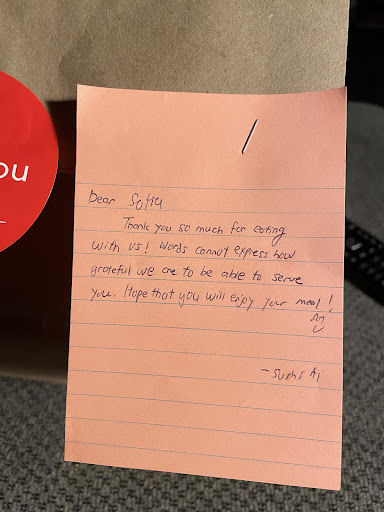 ou
Dear Sofia
Thank you so much for eating
with us! Words cannot express how
grateful we are to be able to serve
you. Hope that you will enjoy your meal!
- Sushi Ai